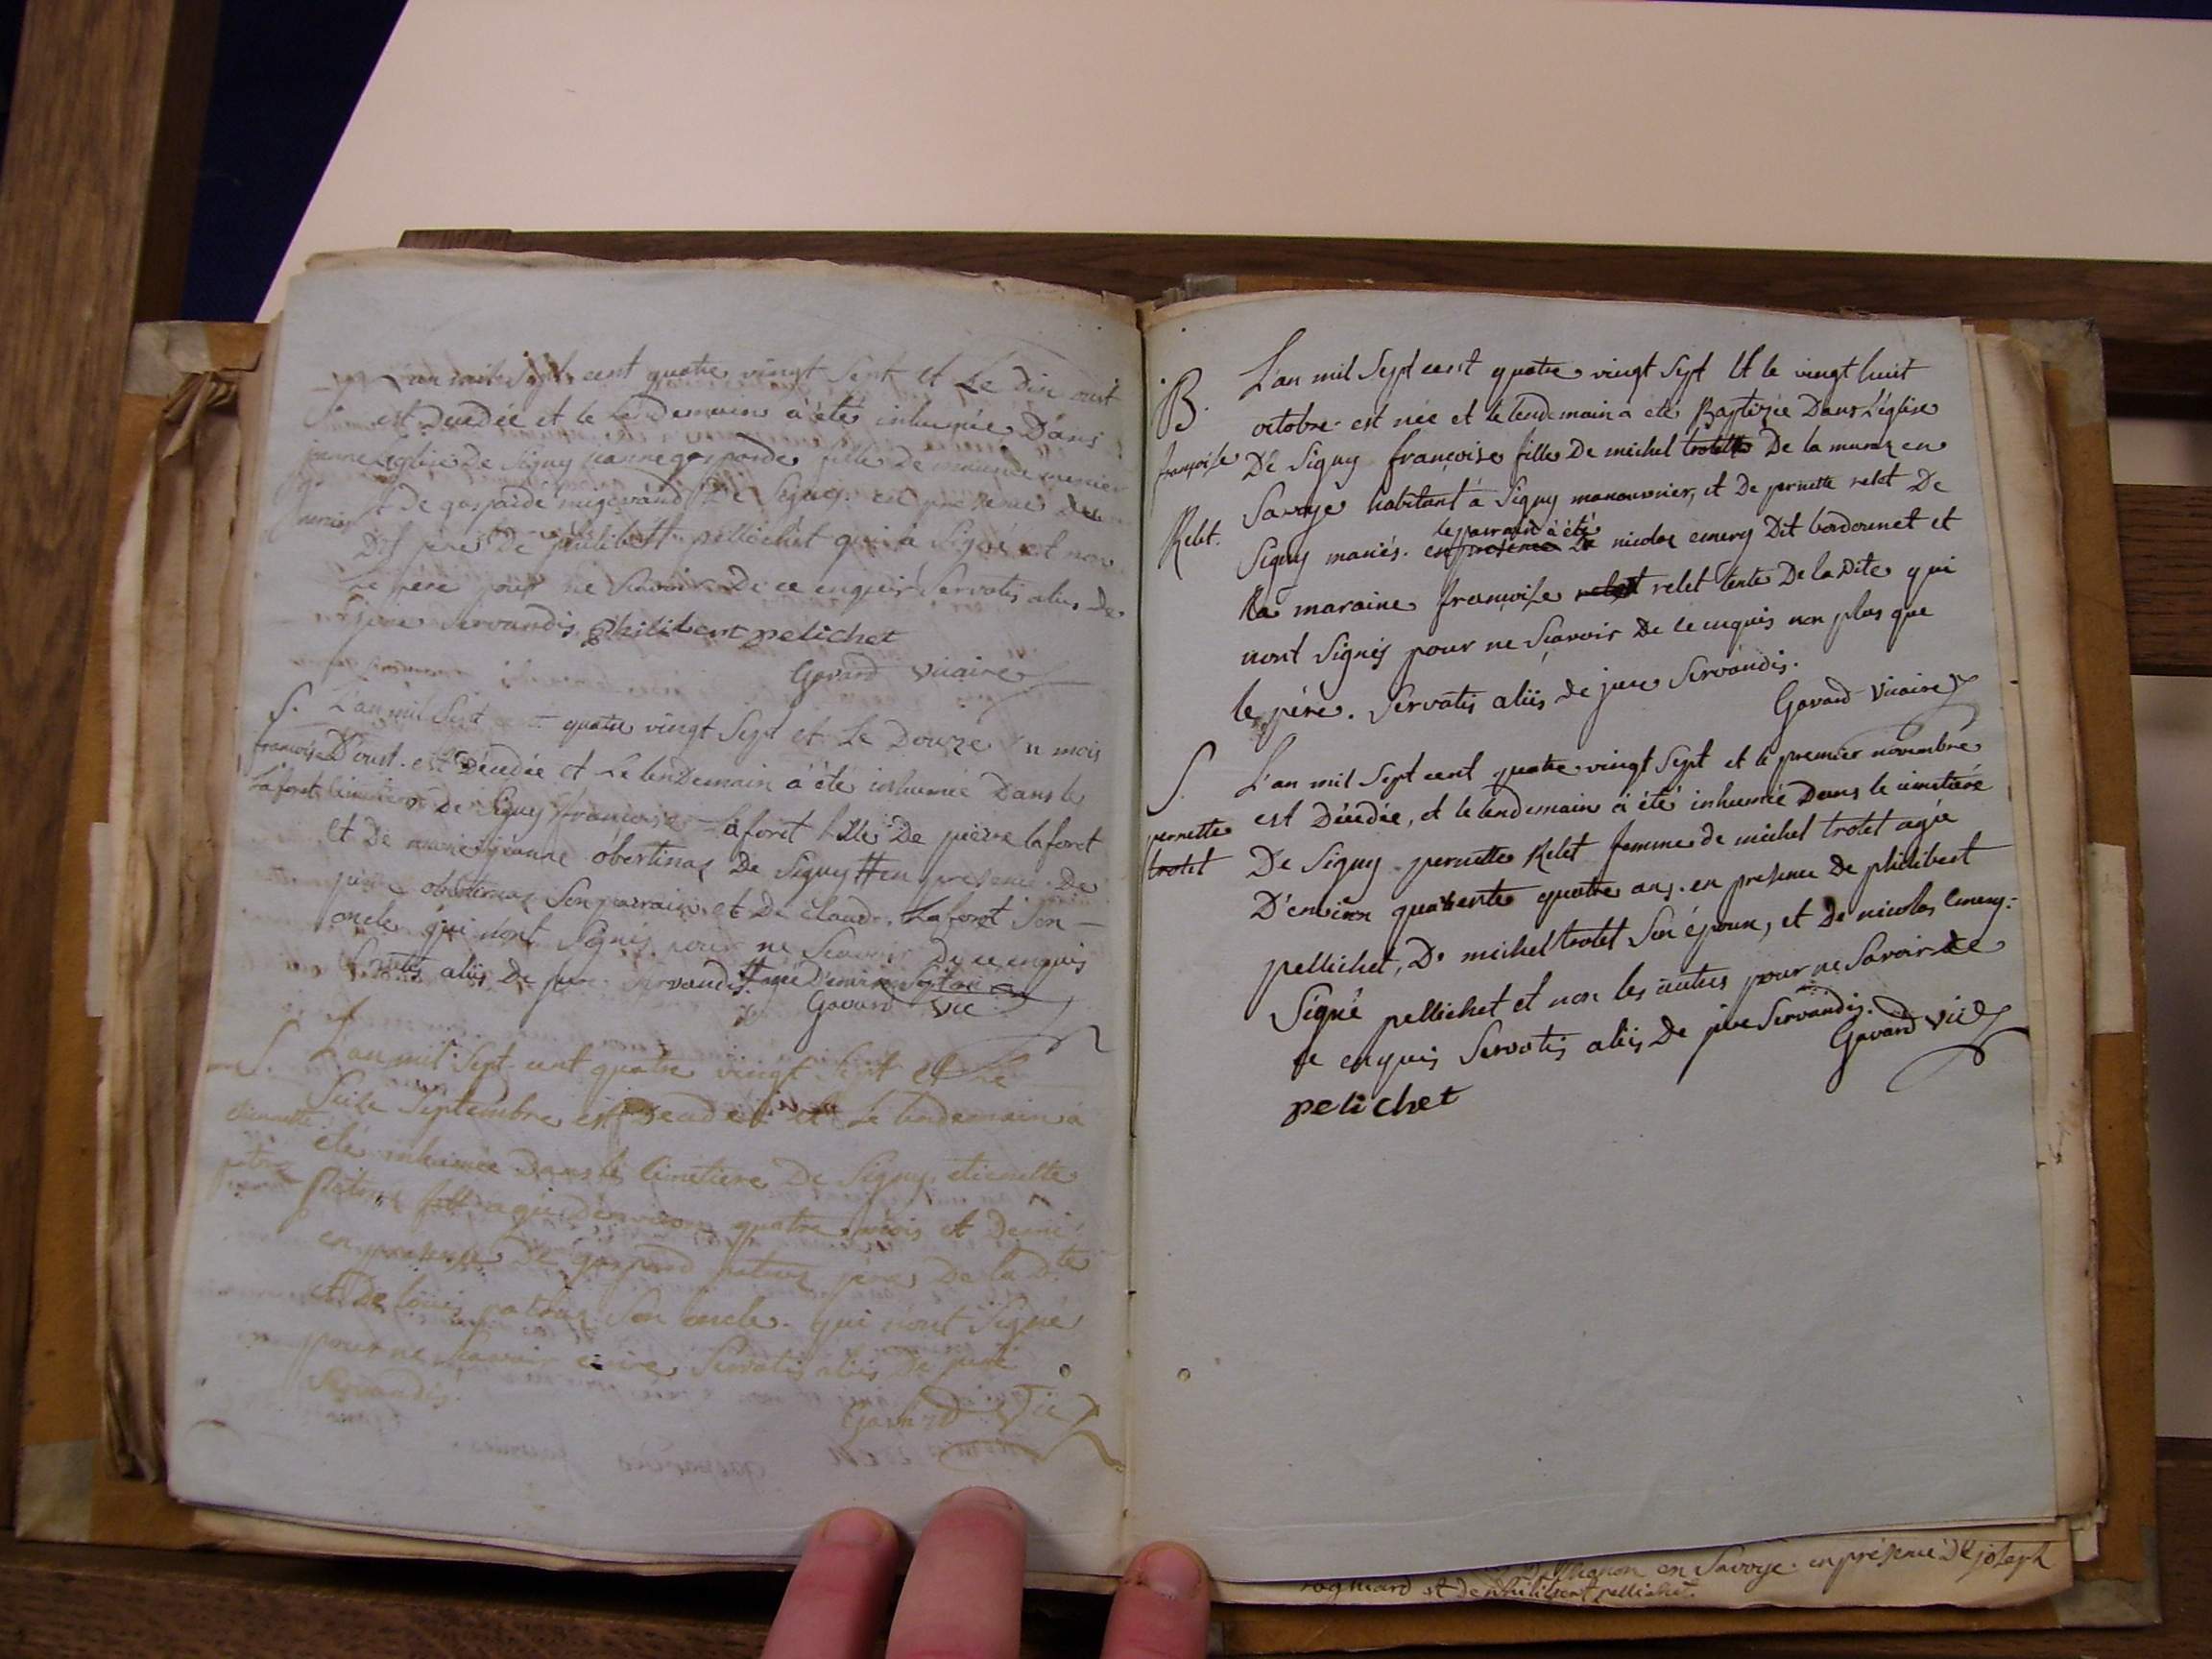 L'an mil Sept cent quatre vingt Sept et Le dix oust
est Decedée et le Lendemain à été inhumée Dans
De Signy jeanne gasparde fille De
De gasparde De Signy en presence
Dit père De philibert pellichet qui à Signé et non
Le père pour ne Scavoir De ce enquis Servatis aliis De
jure Servandis. Philibert pelichet
Gavard Vicaire
S. L'an mil Sept cent quatre vingt Sept et Le Douze Du mois
francoise D'oust est Décédée et Le lenDemain à été inhumée Dans le
Laforet cimetiere De Signy françoise Laforet fille De pierre laforet
et De obertinaz De Signy # en presence De
obertinaz Son parrain et De claude Laforet Son
oncle qui n'ont Signés pour ne Scavoir De ce enquis
Servatis aliis De jure Servandis. # agée D'environ Sept
Gavard Vic
S. L'an mil Sept cent quatre vingt Sept et Le
Seize Septembre est Decedée et Le lendemain à
etiennette été inhumée Dans le Cimetiere De Signy etiennette
agée D'environ quatre mois et Demi
en presence De gaspard père De la Dte
et De louis Son oncle qui n'ont Signé
pour ne Scavoir écrire Servatis aliis De jure
Servandis.
Gavard Vic
B. L'an mil Sept cent quatre vingt Sept et le vingt huit
octobre est née et le lendemain à été Baptizée Dans L'église
françoise De Signy françoise fille De michel trotet De la muraz en
Savoye habitant à Signy manouvrier, et De pernette relet De
Relet. Signy mariés. en presence De le parrain à été nicolas emery Dit bordonnet et
la maraine françoise relet relet tente De la Dite qui
n'ont Signés pour ne Scavoir De ce enquis non plus que
le père. Servatis aliis de jure Servandis.
Gavard Vicaire
S. L'an mil Sept cent quatre vingt Sept et le premier novembre
est Décédée, et le lendemain à été inhumée Dans le cimetiere
pernette De Signy pernette Relet femme de michel trotet agée
trotet D'environ quarente quatre ans. en presence De philibert
pellichet, De michel trotet Son époux, et De nicolas Emery.
Signé pellichet et non les autres pour ne Savoir de
ce enquis Servatis aliis De jure Servandis.
Gavard Vic
pelichet
en Savoye. en présence De joseph
et de philibert pellichet.